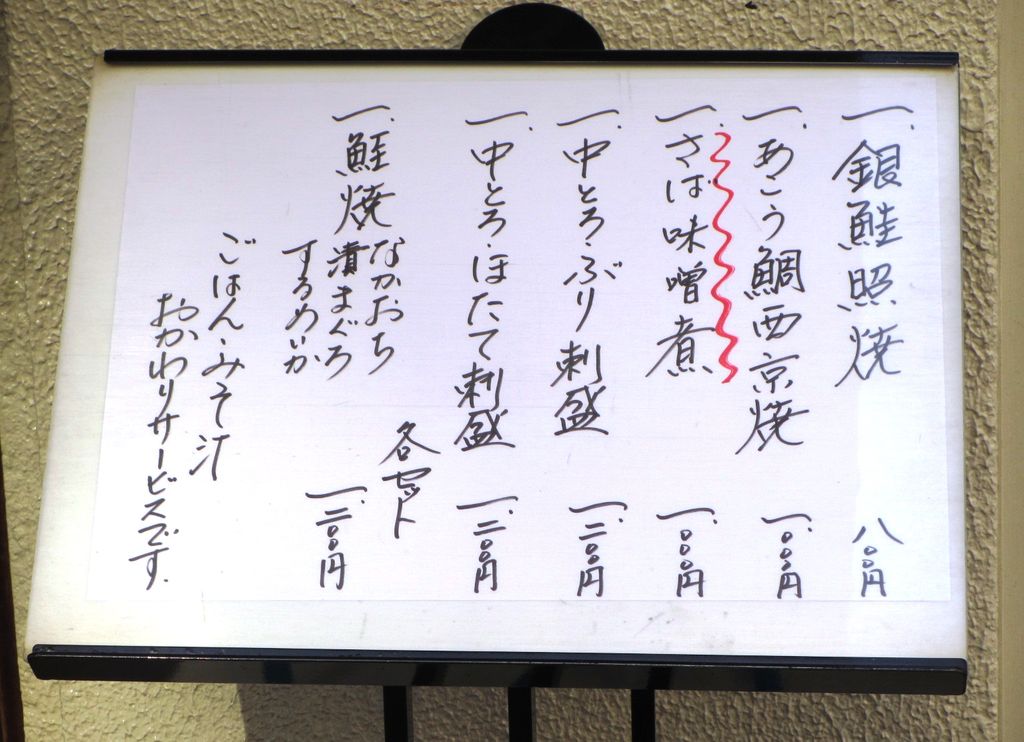 一、銀鮭照焼 八〇〇円
一、あこう鯛西京焼 一、〇〇〇円
一、さば味噌煮 一、〇〇〇円
一、中とろ・ぶり刺盛 一、二〇〇円
一、中とろ・ほたて刺盛 一、二〇〇円
一、鮭焼 なかおち
漬まぐろ
するめいか
各セット 一、二〇〇円
ごはん・みそ汁
おかわりサービスです.